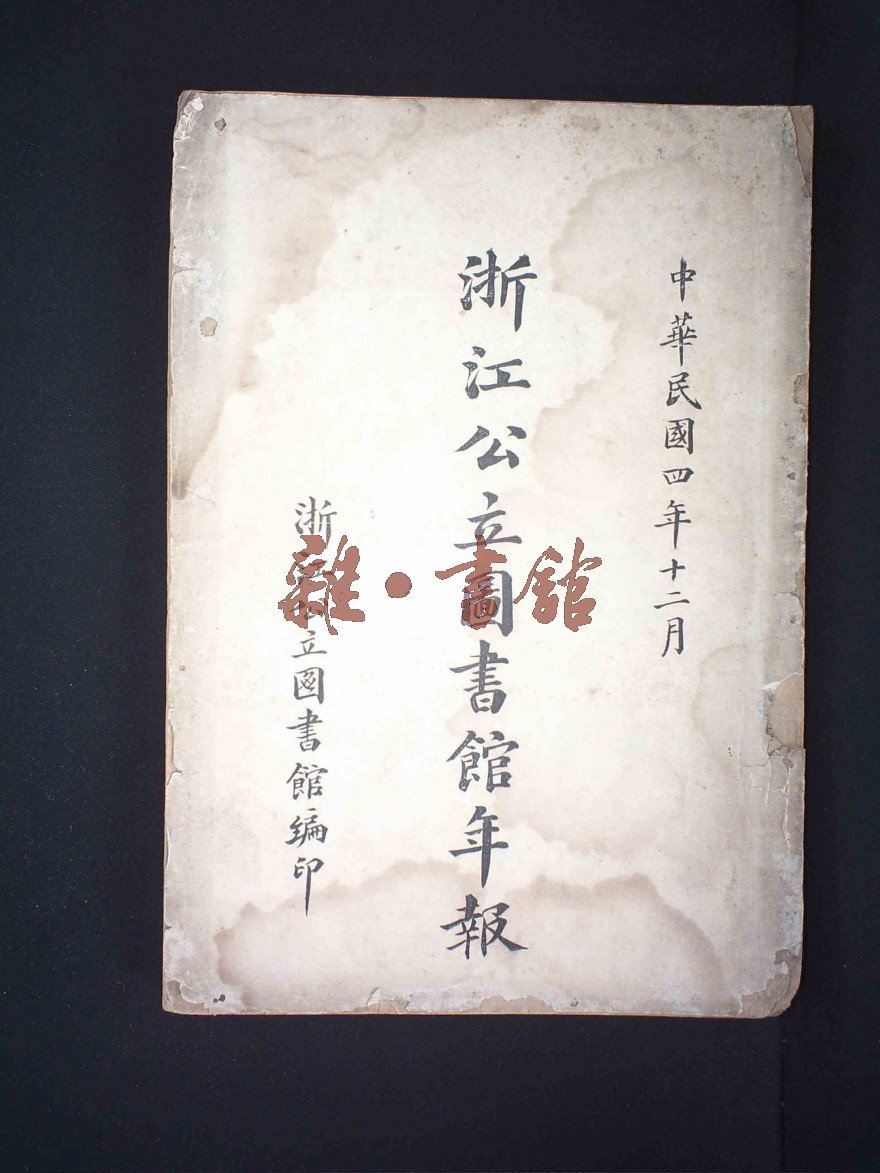 中華民國四年十二月
浙江公立圖書館年報
浙江公立圕書館編印
雜·書館